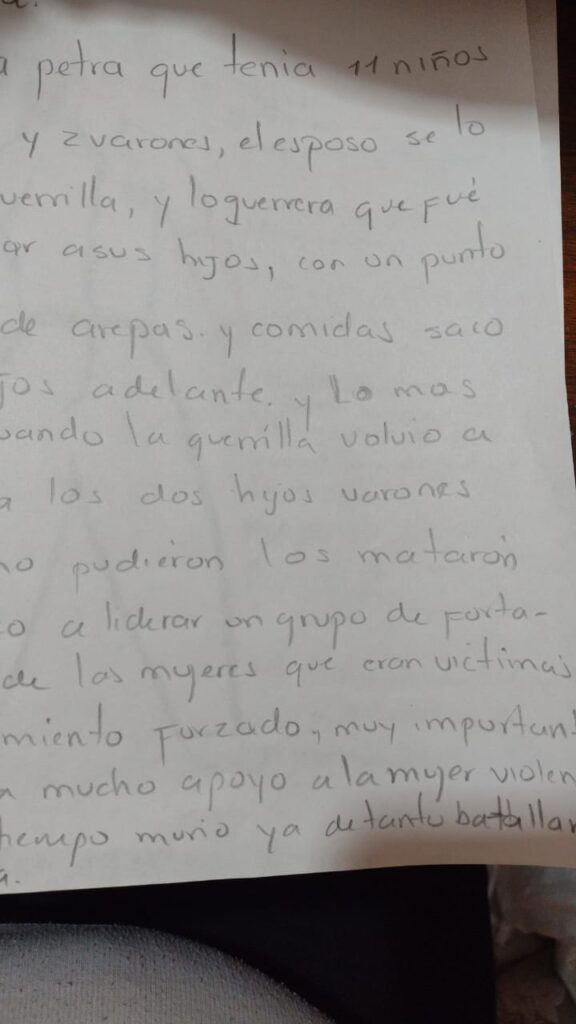 a.
a petra que tenia 11 niños
y 2 varones, el esposo se lo
uerrilla, y la guerrera que fué
ar asus hijos, con un punto
de arepas. y comidas saco
jos adelante. y Lo mas
uando la guerrilla volvio a
a los dos hijos varones
no pudieron los matarón
o a liderar un grupo de forta-
de las mujeres que eran victimas
miento Forzado, muy important
a mucho apoyo a la mujer violen
tiempo murio ya de tanto batallar
a.